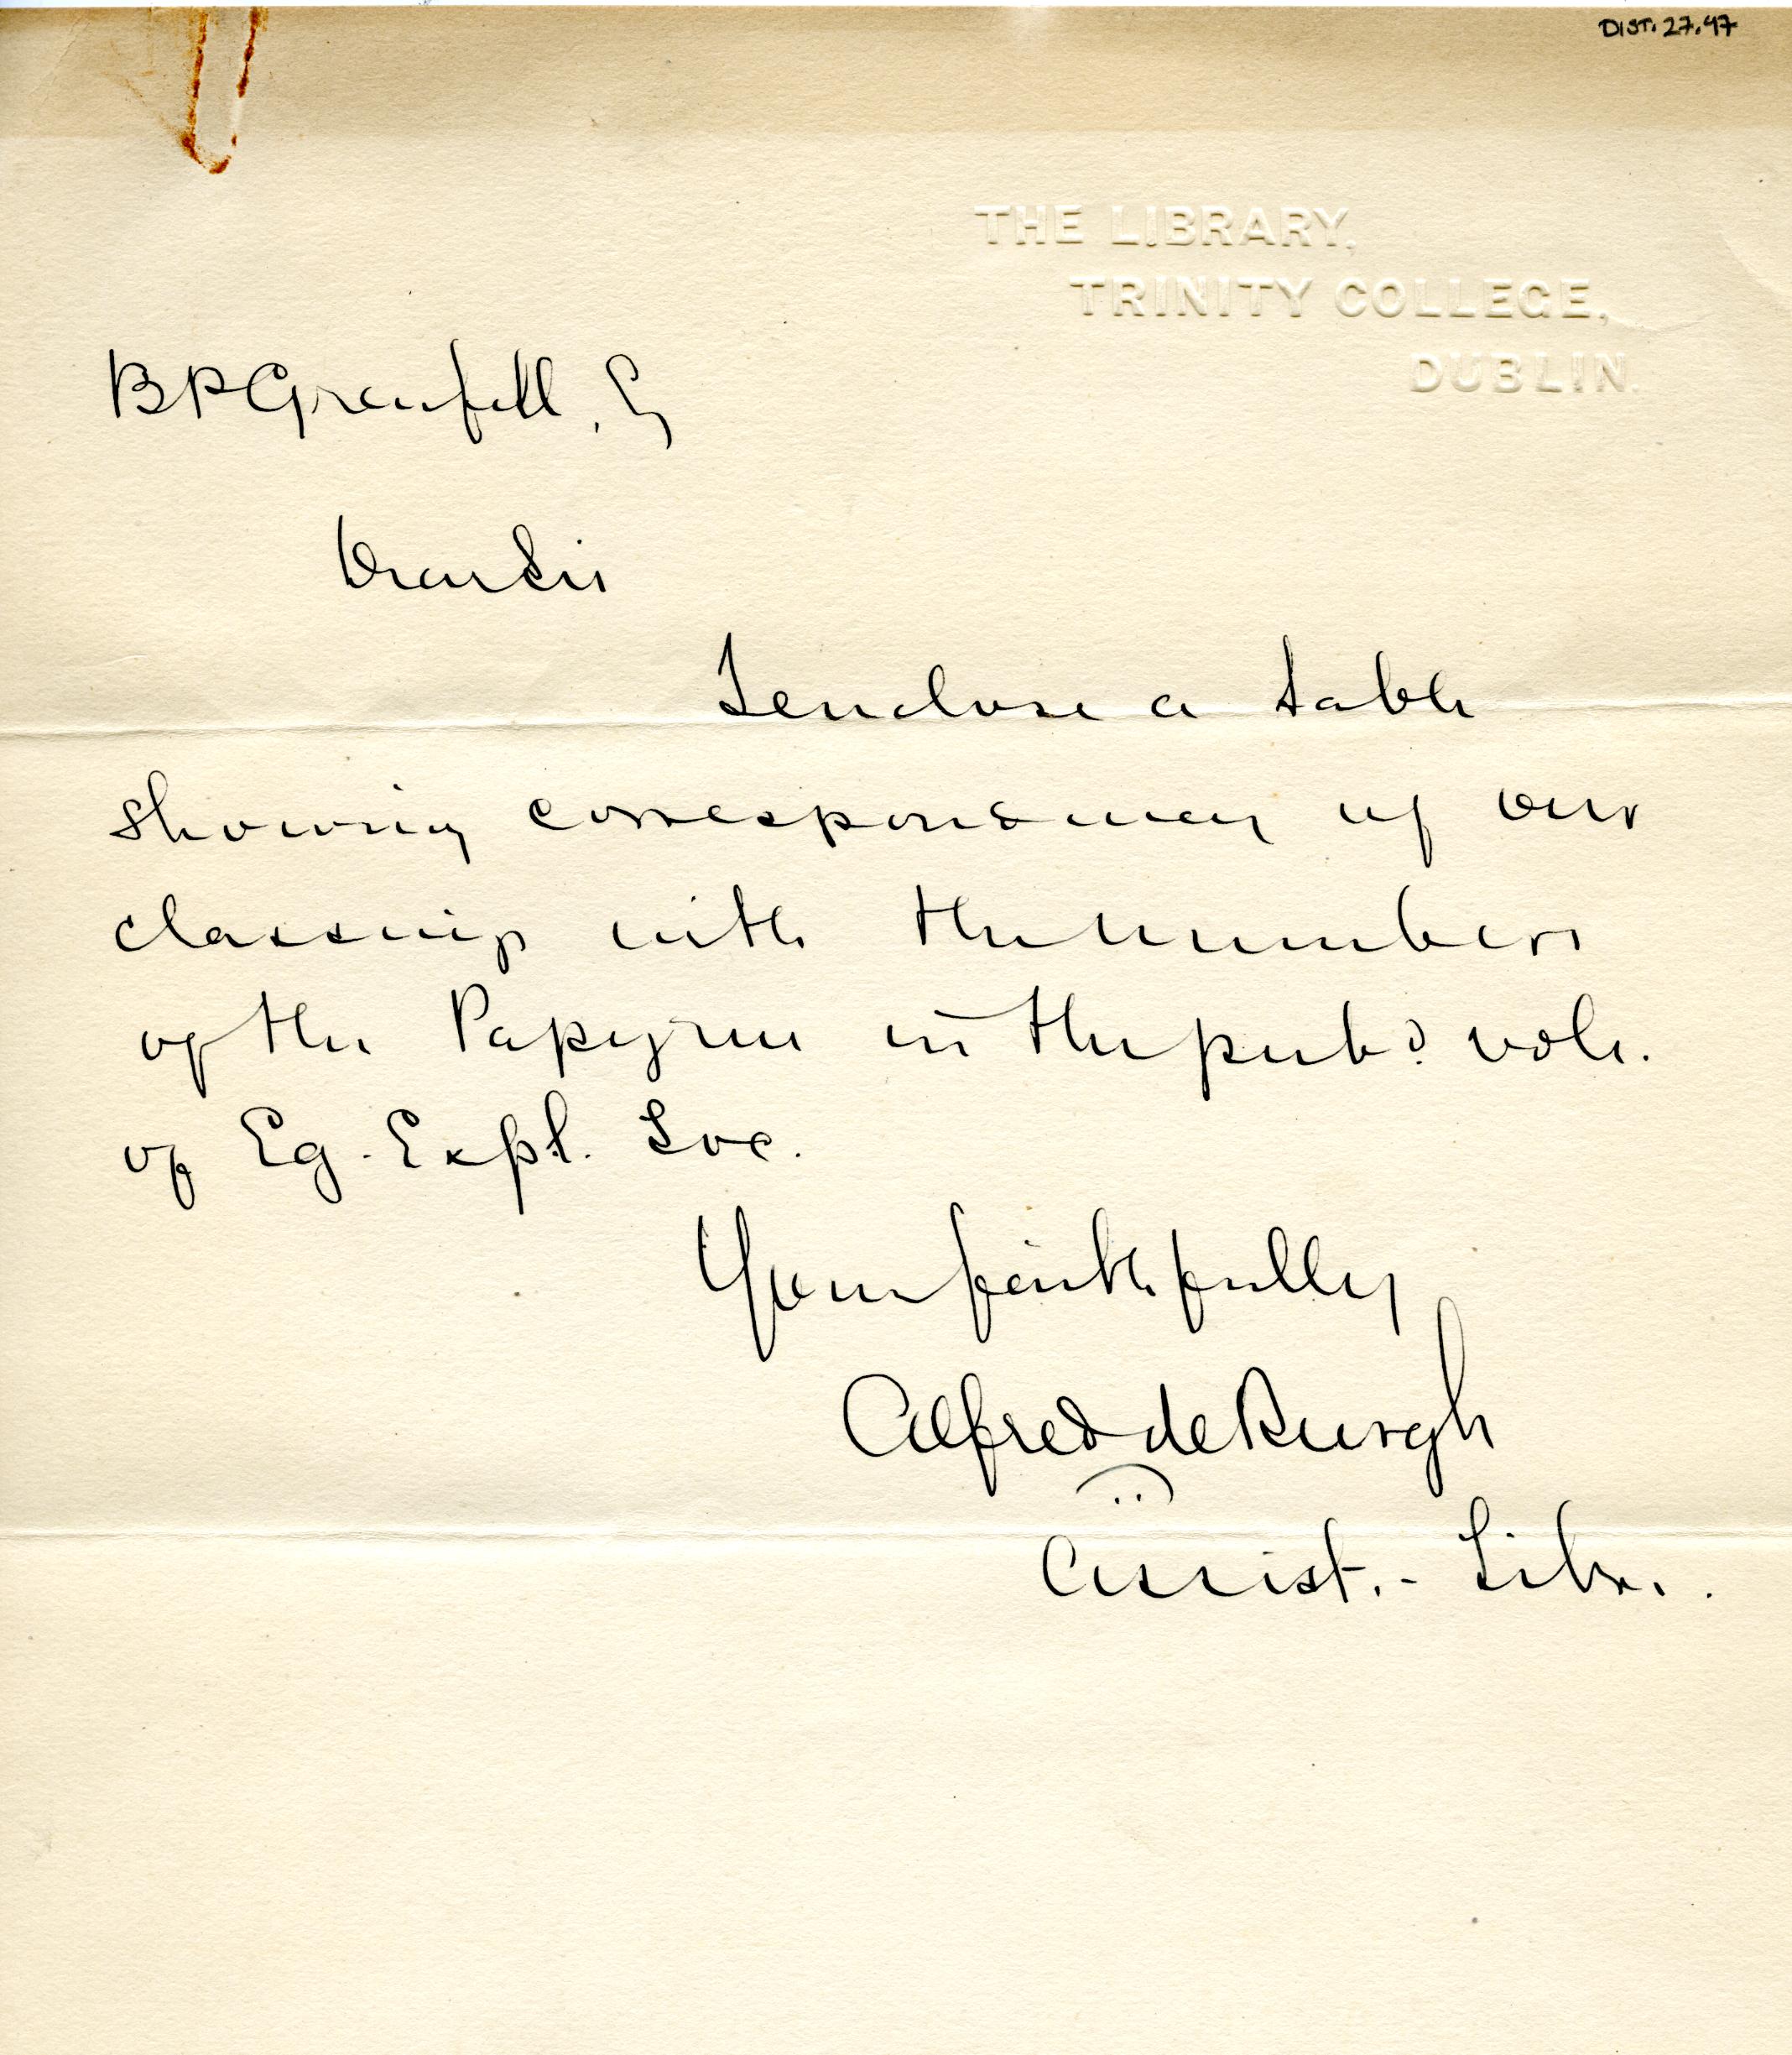 DIST. 27.47
THE LIBRARY,
TRINITY COLLEGE,
DUBLIN.
B P Grenfell, Esq
Dear Sir
I enclose a table
showing correspondency of our
classing with the numbers
of the Papyrus in the pubd. vols.
of Eg. Expl. Soc.
Yours faithfully
Alfred de Burgh
Assist. - Libr.